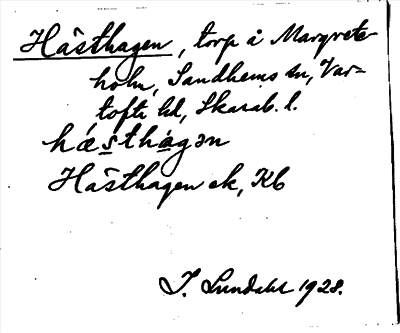 Hästhagen, torp å Margrete-
holm, Sandhems sn, Var-
tofte hd, Skarab. l.
hǽsthàgən
Hästhagen ek, Kb
I. Lundahl 1928.